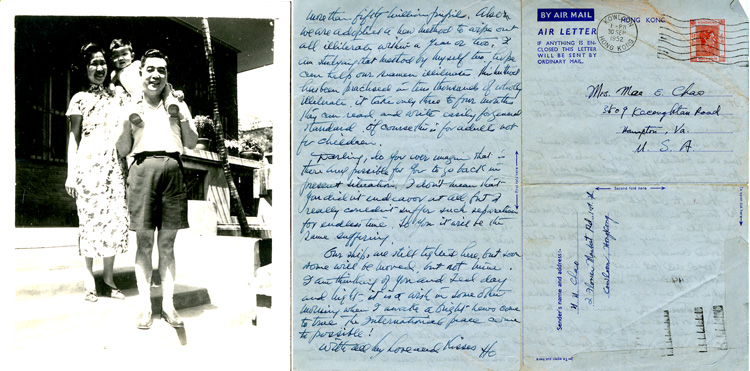 more than eighty million pupils. Also,
we are adopting a new method to wipe out
all illiterate within a year or two. I
am studying that method by myself too, hope
can help our seamen illiterate. This method
has been practised in tens thousands of wholly
illiterate, it take only three to four months
they can read and write easily for general
standard. Of course this is for adults not
for children.
Darling, do you ever imagin that is
there any possible for you to go back in
present situation. I don't mean that
you did not endeavor at all, but I
really couldn't suffer such separation
for endless time. To you it will be the
same suffering.
Our ships are still tighted here, but soon
some will be moved, but not mine.
I am thinking of you and Lind day
and night. it is a wish in some other
morning when I awake a bright news come
to true. The international peace
to possible!
With all my Love and Kisses Ho
BY AIR MAIL
HONG KONG
AIR LETTER
IF ANYTHING IS EN-
CLOSED THIS LETTER
WILL BE SENT BY
ORDINARY MAIL.
KOWLOON
1 - PM
30 SEP
1952
HONG KONG
Mrs. Mae E. Chao
3809 Kecoughtan Road
Hampton, Va.
U. S. A
First fold here
Second fold here
Sender's name and address:-
H. H. Chao
Kowloon - Hongkong
To open cut here